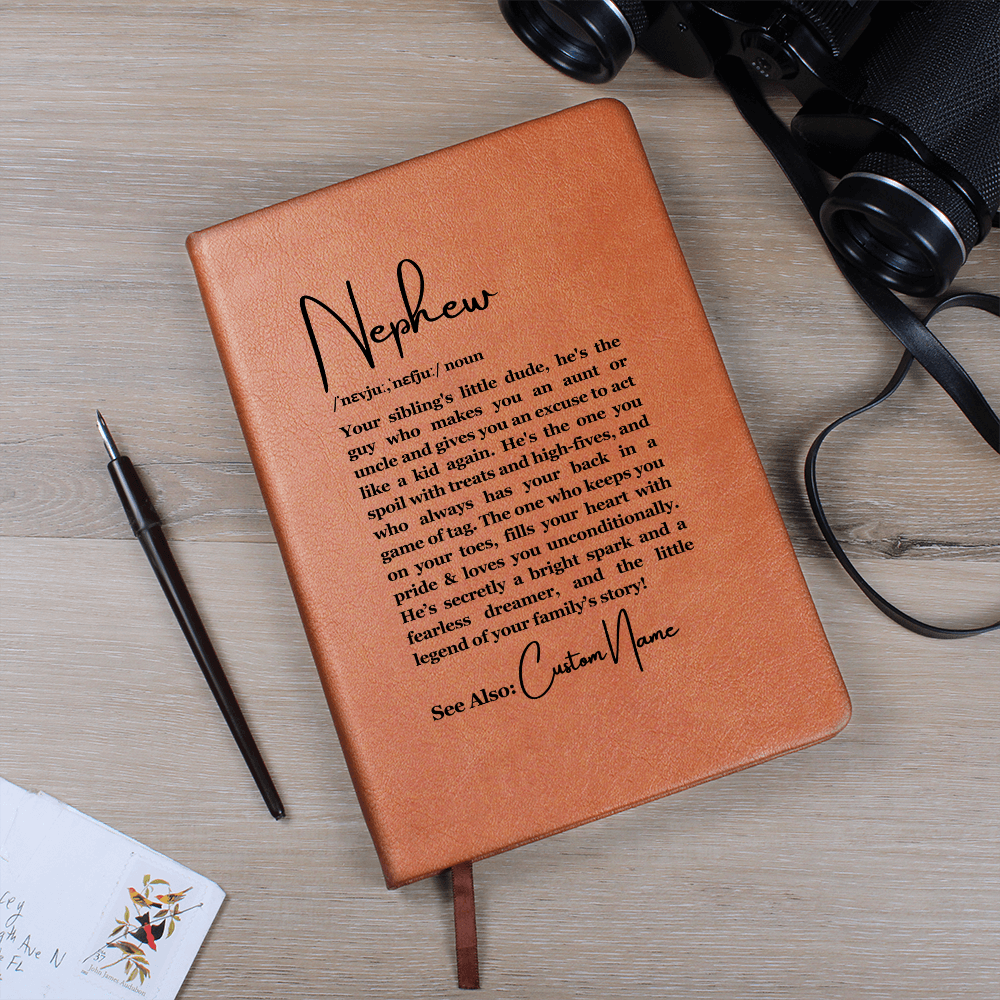 Nephew
/ˈnɛvjuː,ˈnɛfjuː/ noun
Your sibling's little dude, he's the
guy who makes you an aunt or
uncle and gives you an excuse to act
like a kid again. He's the one you
spoil with treats and high-fives, and
who always has your back in a
game of tag. The one who keeps you
on your toes, fills your heart with
pride & loves you unconditionally.
He's secretly a bright spark and a
fearless dreamer, and the little
legend of your family's story!
See Also: Custom Name
Ave N
FL
37
John James Audubon